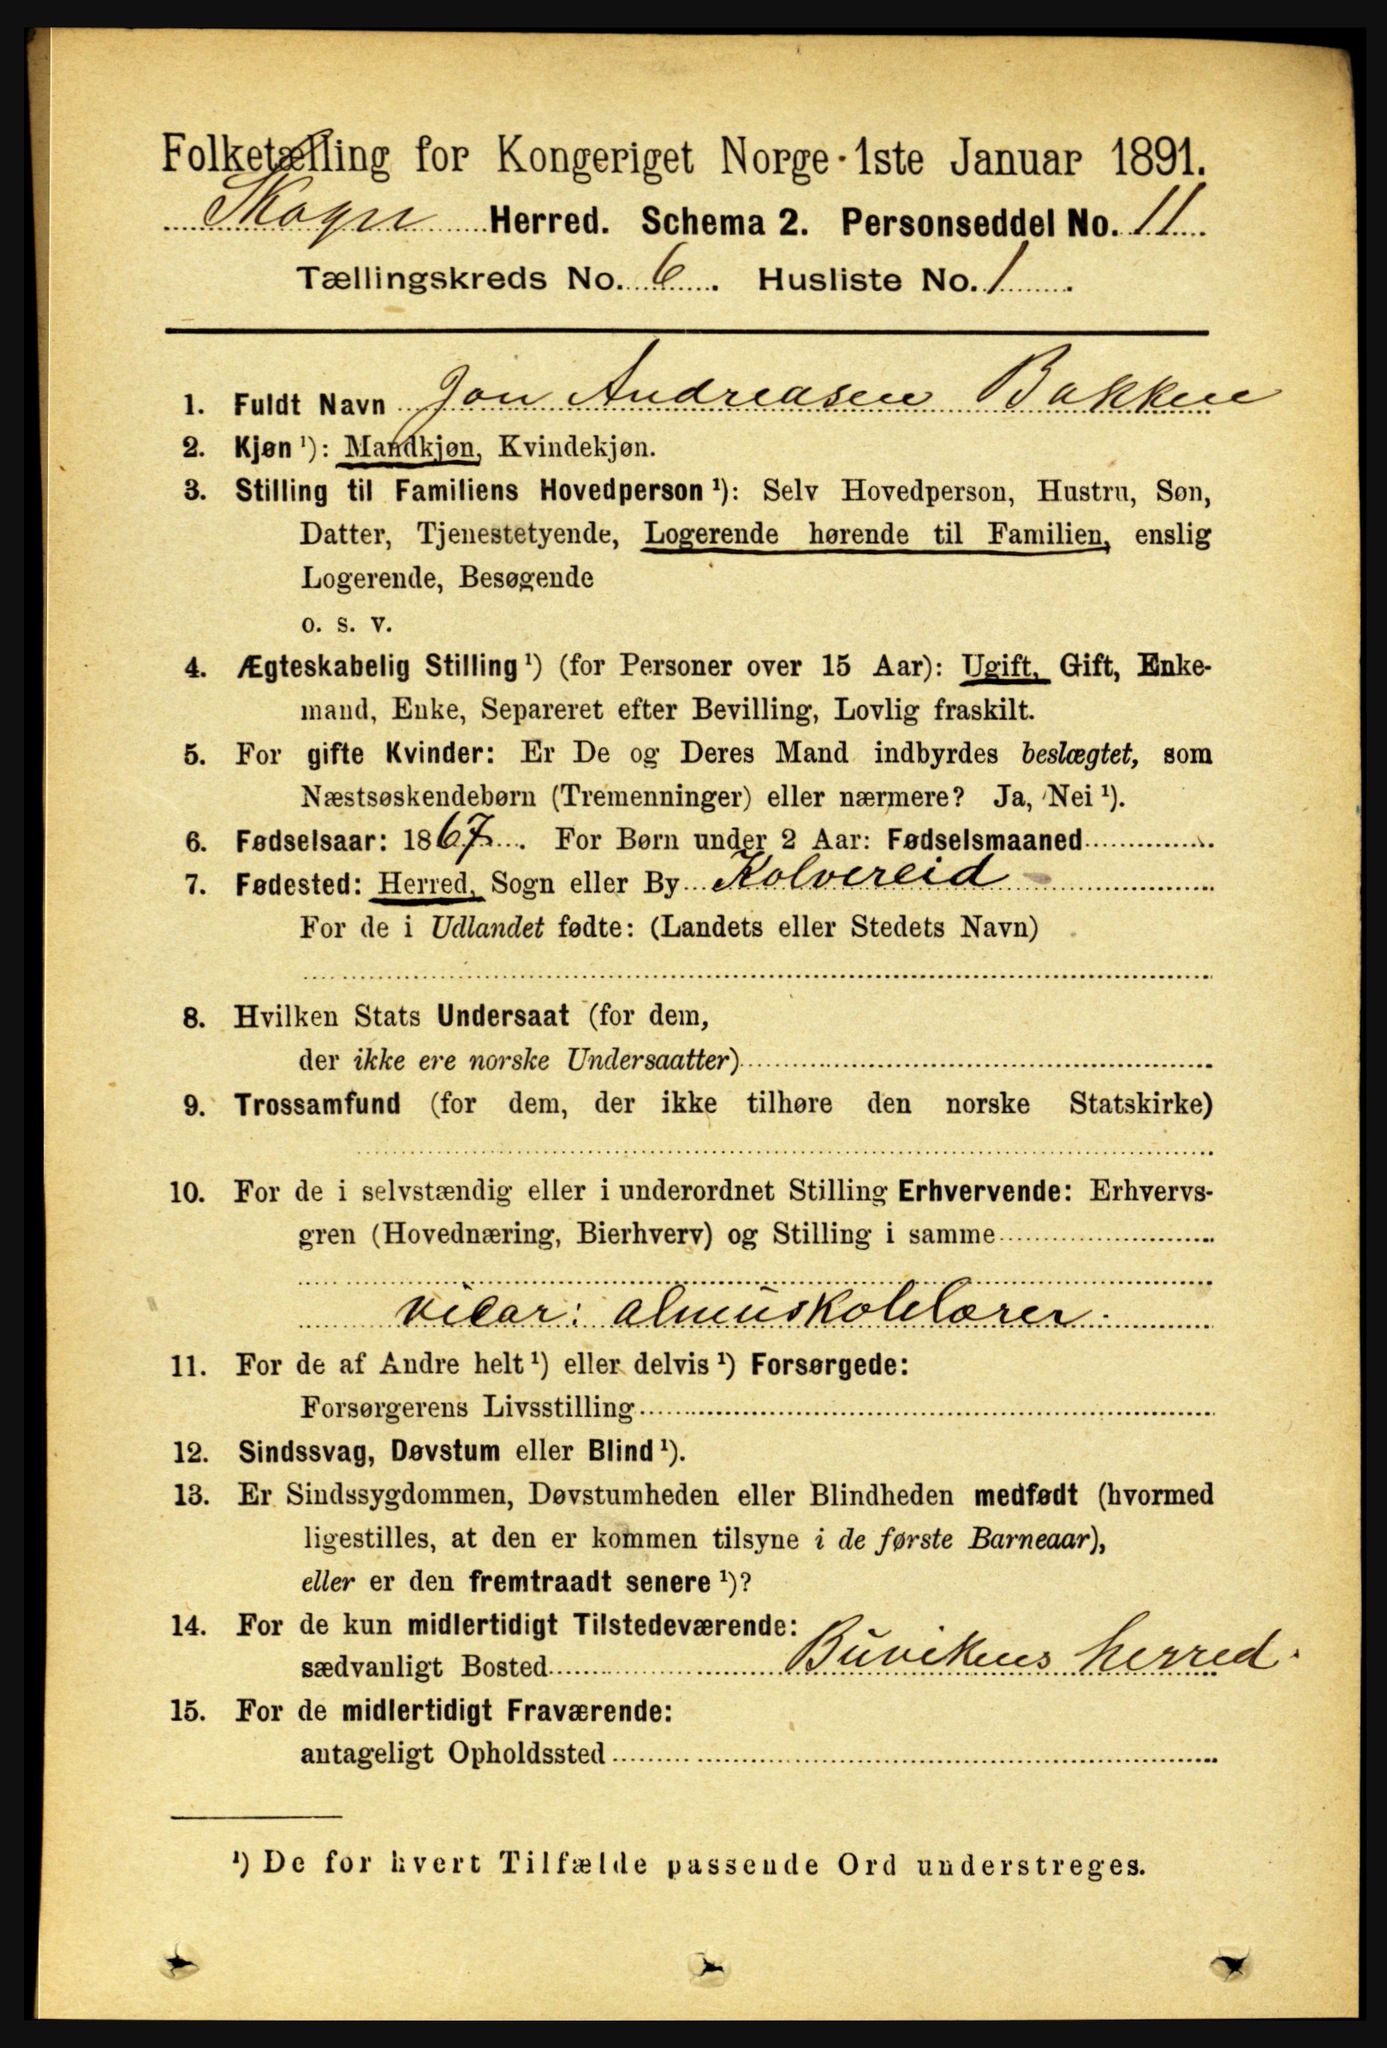 Folketælling for Kongeriget Norge · 1ste Januar 1891.
Skogn Herred. Schema 2. Personseddel No. 11
Tællingskreds No. 6. Husliste No. 1.
1. Fuldt Navn Jon Andreasen Bakken
2. Kjøn ¹): Mandkjøn, Kvindekjøn.
3. Stilling til Familiens Hovedperson ¹): Selv Hovedperson, Hustru, Søn,
Datter, Tjenestetyende, Logerende hørende til Familien, enslig
Logerende, Besøgende
o. s. v.
4. Ægteskabelig Stilling ¹) (for Personer over 15 Aar): Ugift, Gift, Enke-
mand, Enke, Separeret efter Bevilling, Lovlig fraskilt.
5. For gifte Kvinder: Er De og Deres Mand indbyrdes beslægtet, som
Næstsøskendebørn (Tremenninger) eller nærmere? Ja, Nei ¹).
6. Fødselsaar: 1867. For Børn under 2 Aar: Fødselsmaaned
7. Fødested: Herred, Sogn eller By Kolvereid
For de i Udlandet fødte: (Landets eller Stedets Navn)
8. Hvilken Stats Undersaat (for dem,
der ikke ere norske Undersaatter)
9. Trossamfund (for dem, der ikke tilhøre den norske Statskirke)
10. For de i selvstændig eller i underordnet Stilling Erhvervende: Erhvervs-
gren (Hovednæring, Bierhverv) og Stilling i samme
vicar: almuskolelærer.
11. For de af Andre helt ¹) eller delvis ¹) Forsørgede:
Forsørgerens Livsstilling
12. Sindssvag, Døvstum eller Blind ¹).
13. Er Sindssygdommen, Døvstumheden eller Blindheden medfødt (hvormed
ligestilles, at den er kommen tilsyne i de første Barneaar),
eller er den fremtraadt senere ¹)?
14. For de kun midlertidigt Tilstedeværende:
sædvanligt Bosted Buvikens herred.
15. For de midlertidigt Fraværende:
antageligt Opholdssted
¹) De for hvert Tilfælde passende Ord understreges.